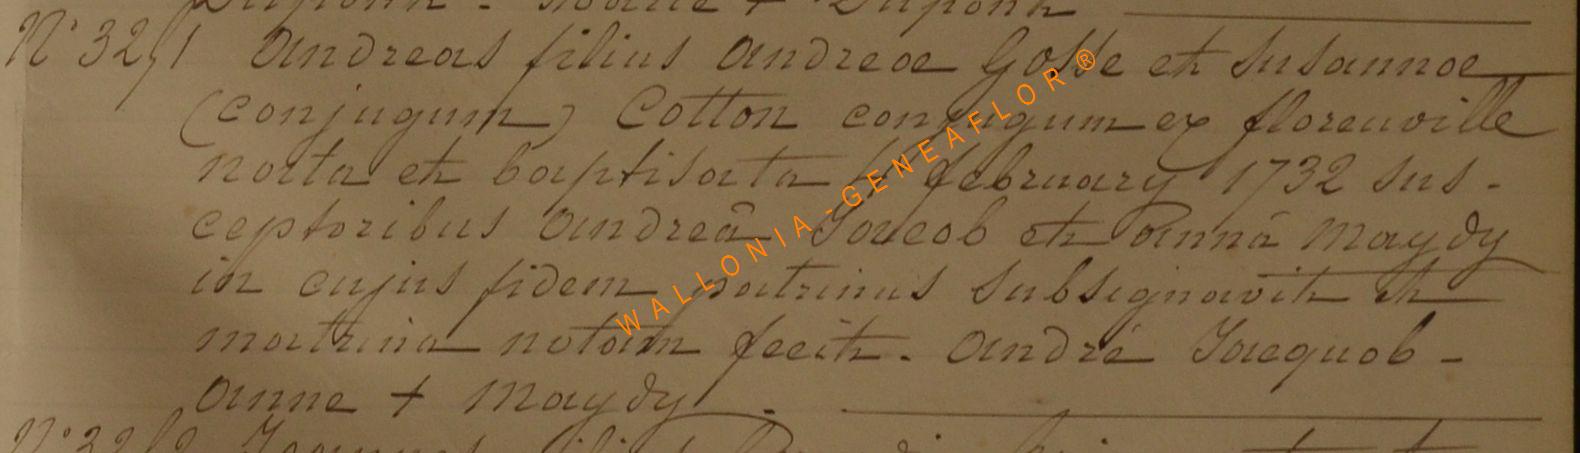 Dupont - Marie + Dupont
N° 3241 Andreas filius Andreae Gosse et Susannae
(conjugum) Cotton conjugum ex florenville
nata et baptisata 4 february 1732 sus-
ceptoribus Andreâ Jacob et Annâ Maydy
in cujus fidem patrinus subsignavit et
matrina notam fecit - André Jacquob -
Anne + Maydy.
N° 3242 Joannes filius
WALLONIA-GENEAFLOR®